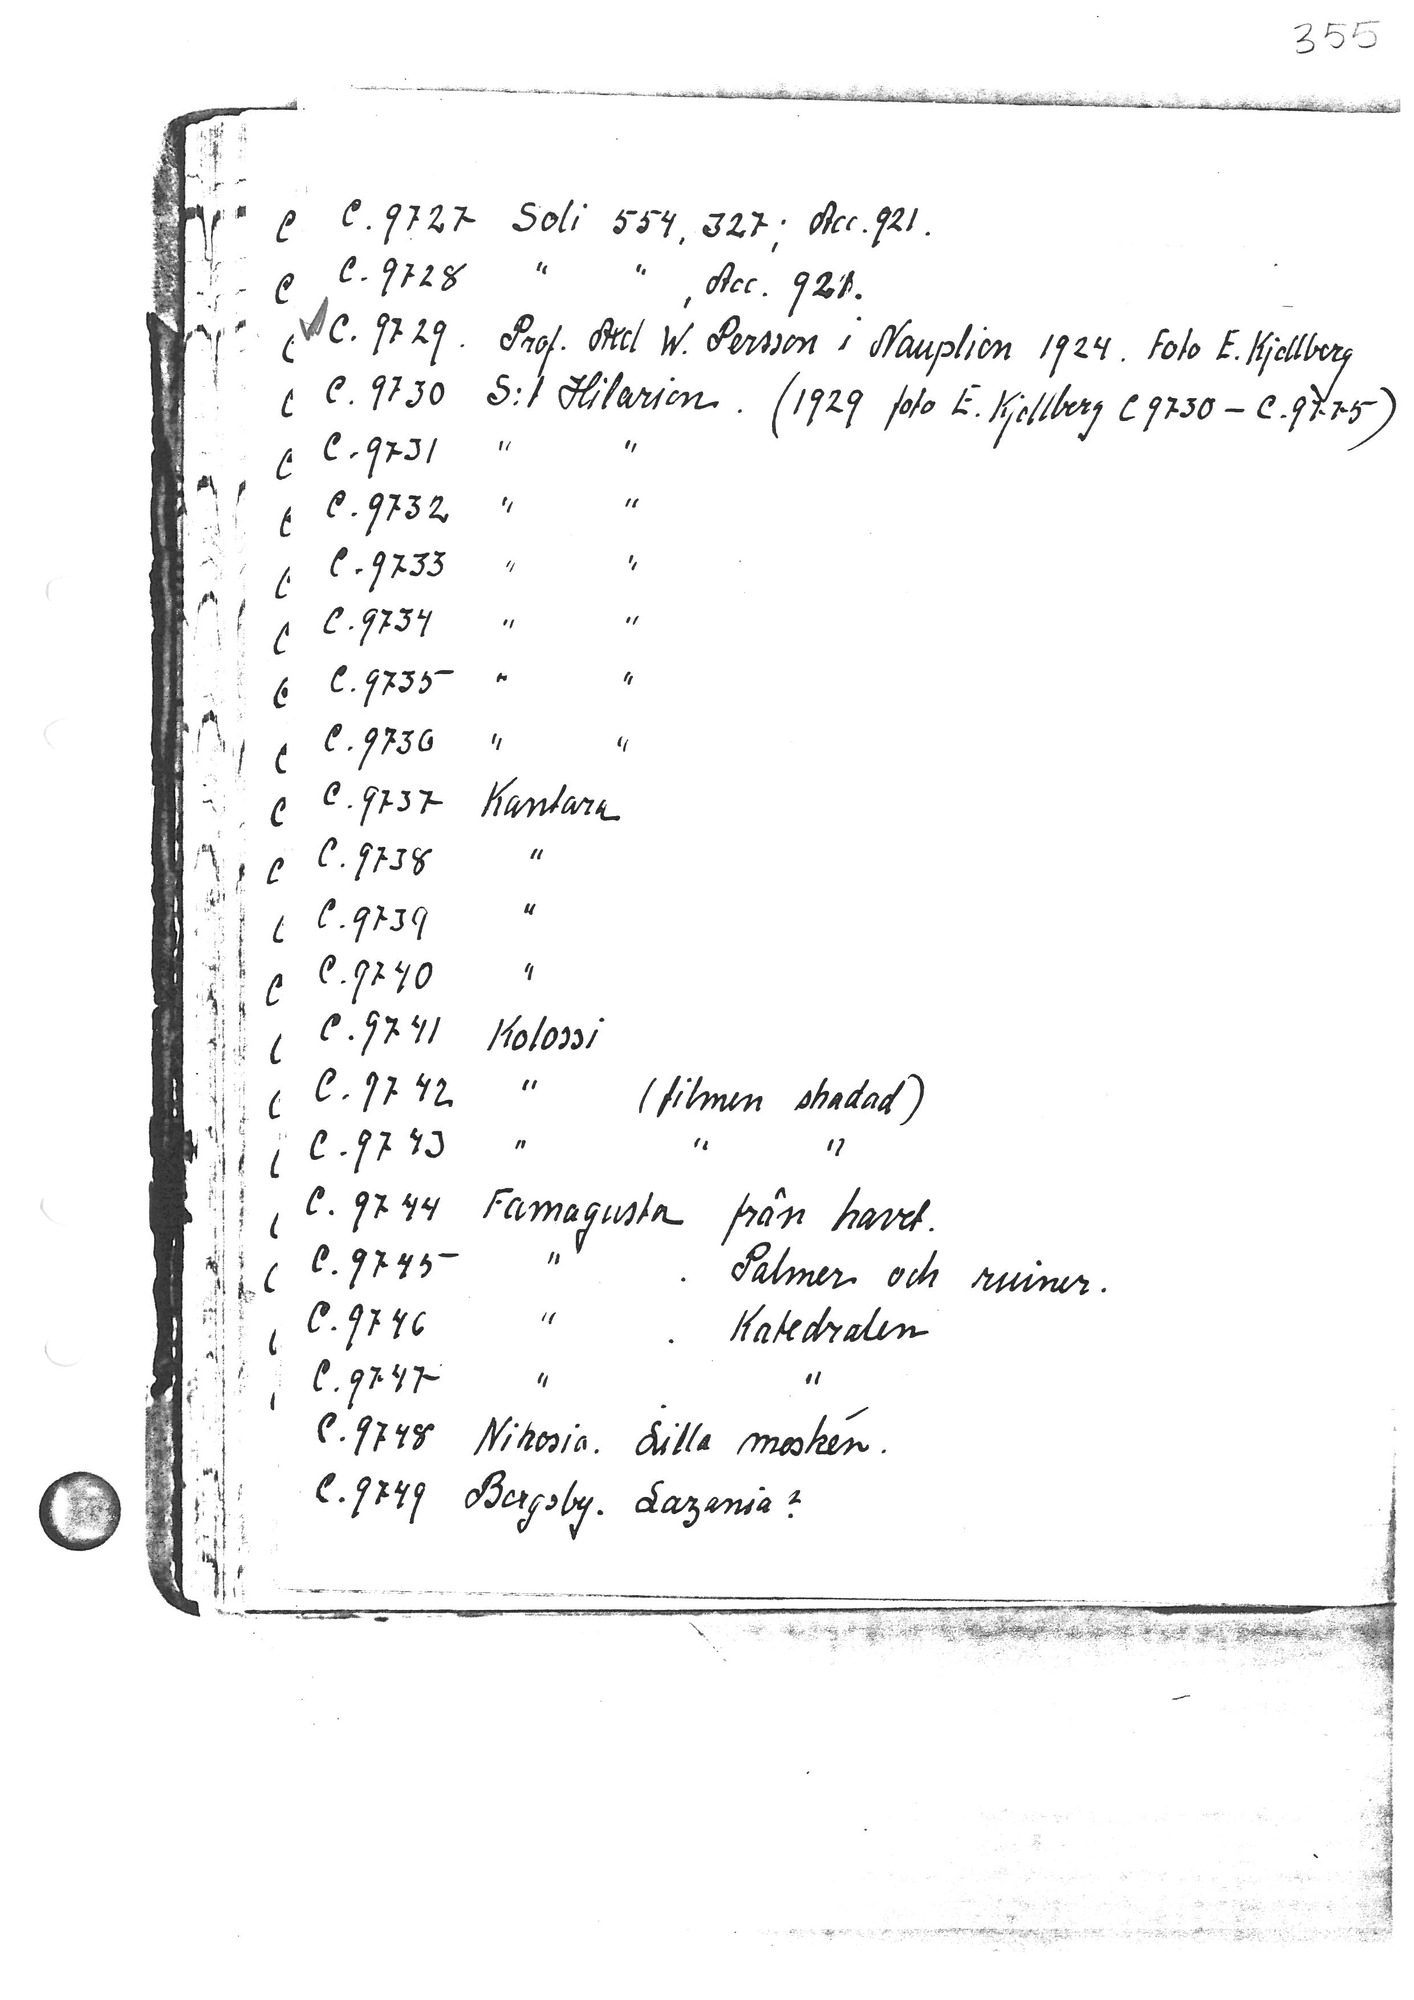 355
C C.9727 Soli 554, 327; Acc. 921.
C C.9728 " " , Acc. 921.
C C.9729. Prof. Axel W. Persson i Nauplion 1924. Foto E. Kjellberg
C C.9730 S:t Hilarion. (1929 foto E. Kjellberg C 9730 – C.9775)
C C.9731 " "
C C.9732 " "
C C.9733 " "
C C.9734 " "
C C.9735 " "
C C.9736 " "
C C.9737 Kantara
C C.9738 "
C C.9739 "
C C.9740 "
C C.9741 Kolossi
C C.9742 " (filmen skadad)
C C.9743 " " "
C C.9744 Famagusta från havet.
C C.9745 " . Palmer och ruiner.
C C.9746 " . Katedralen
C C.9747 " "
C.9748 Nikosia. Lilla moskén.
C.9749 Bergsby. Lazania?